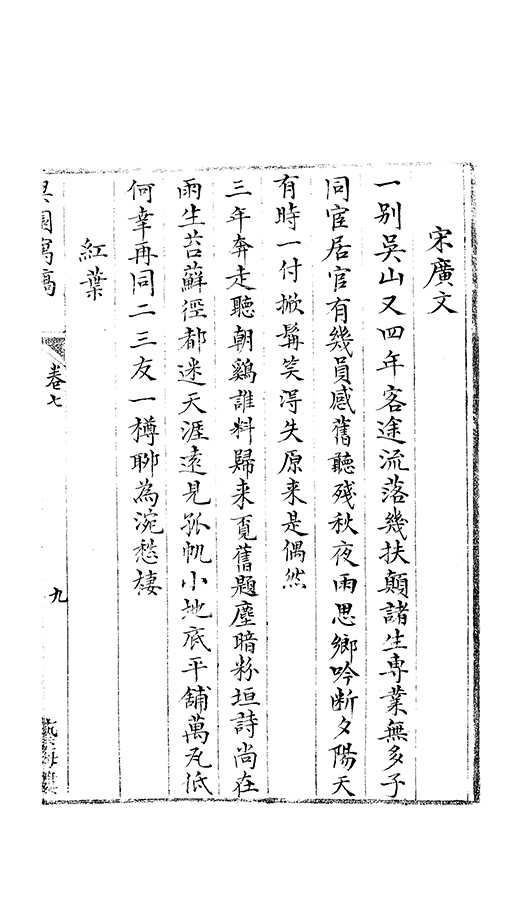 宋廣文
一别吳山又四年客途流落幾扶顛諸生專業無多子
同宦居官有幾員感舊聽殘秋夜雨思鄉吟断夕陽天
有時一付掀髯笑得失原来是偶然
三年奔走聽朝鷄誰料歸来覔舊題塵暗粉垣詩尚在
雨生苔蘚徑都迷天涯遠見孤帆小地底平舖萬瓦低
何幸再同二三友一樽聊為浣愁棲
紅葉
園寓稿
卷七
九